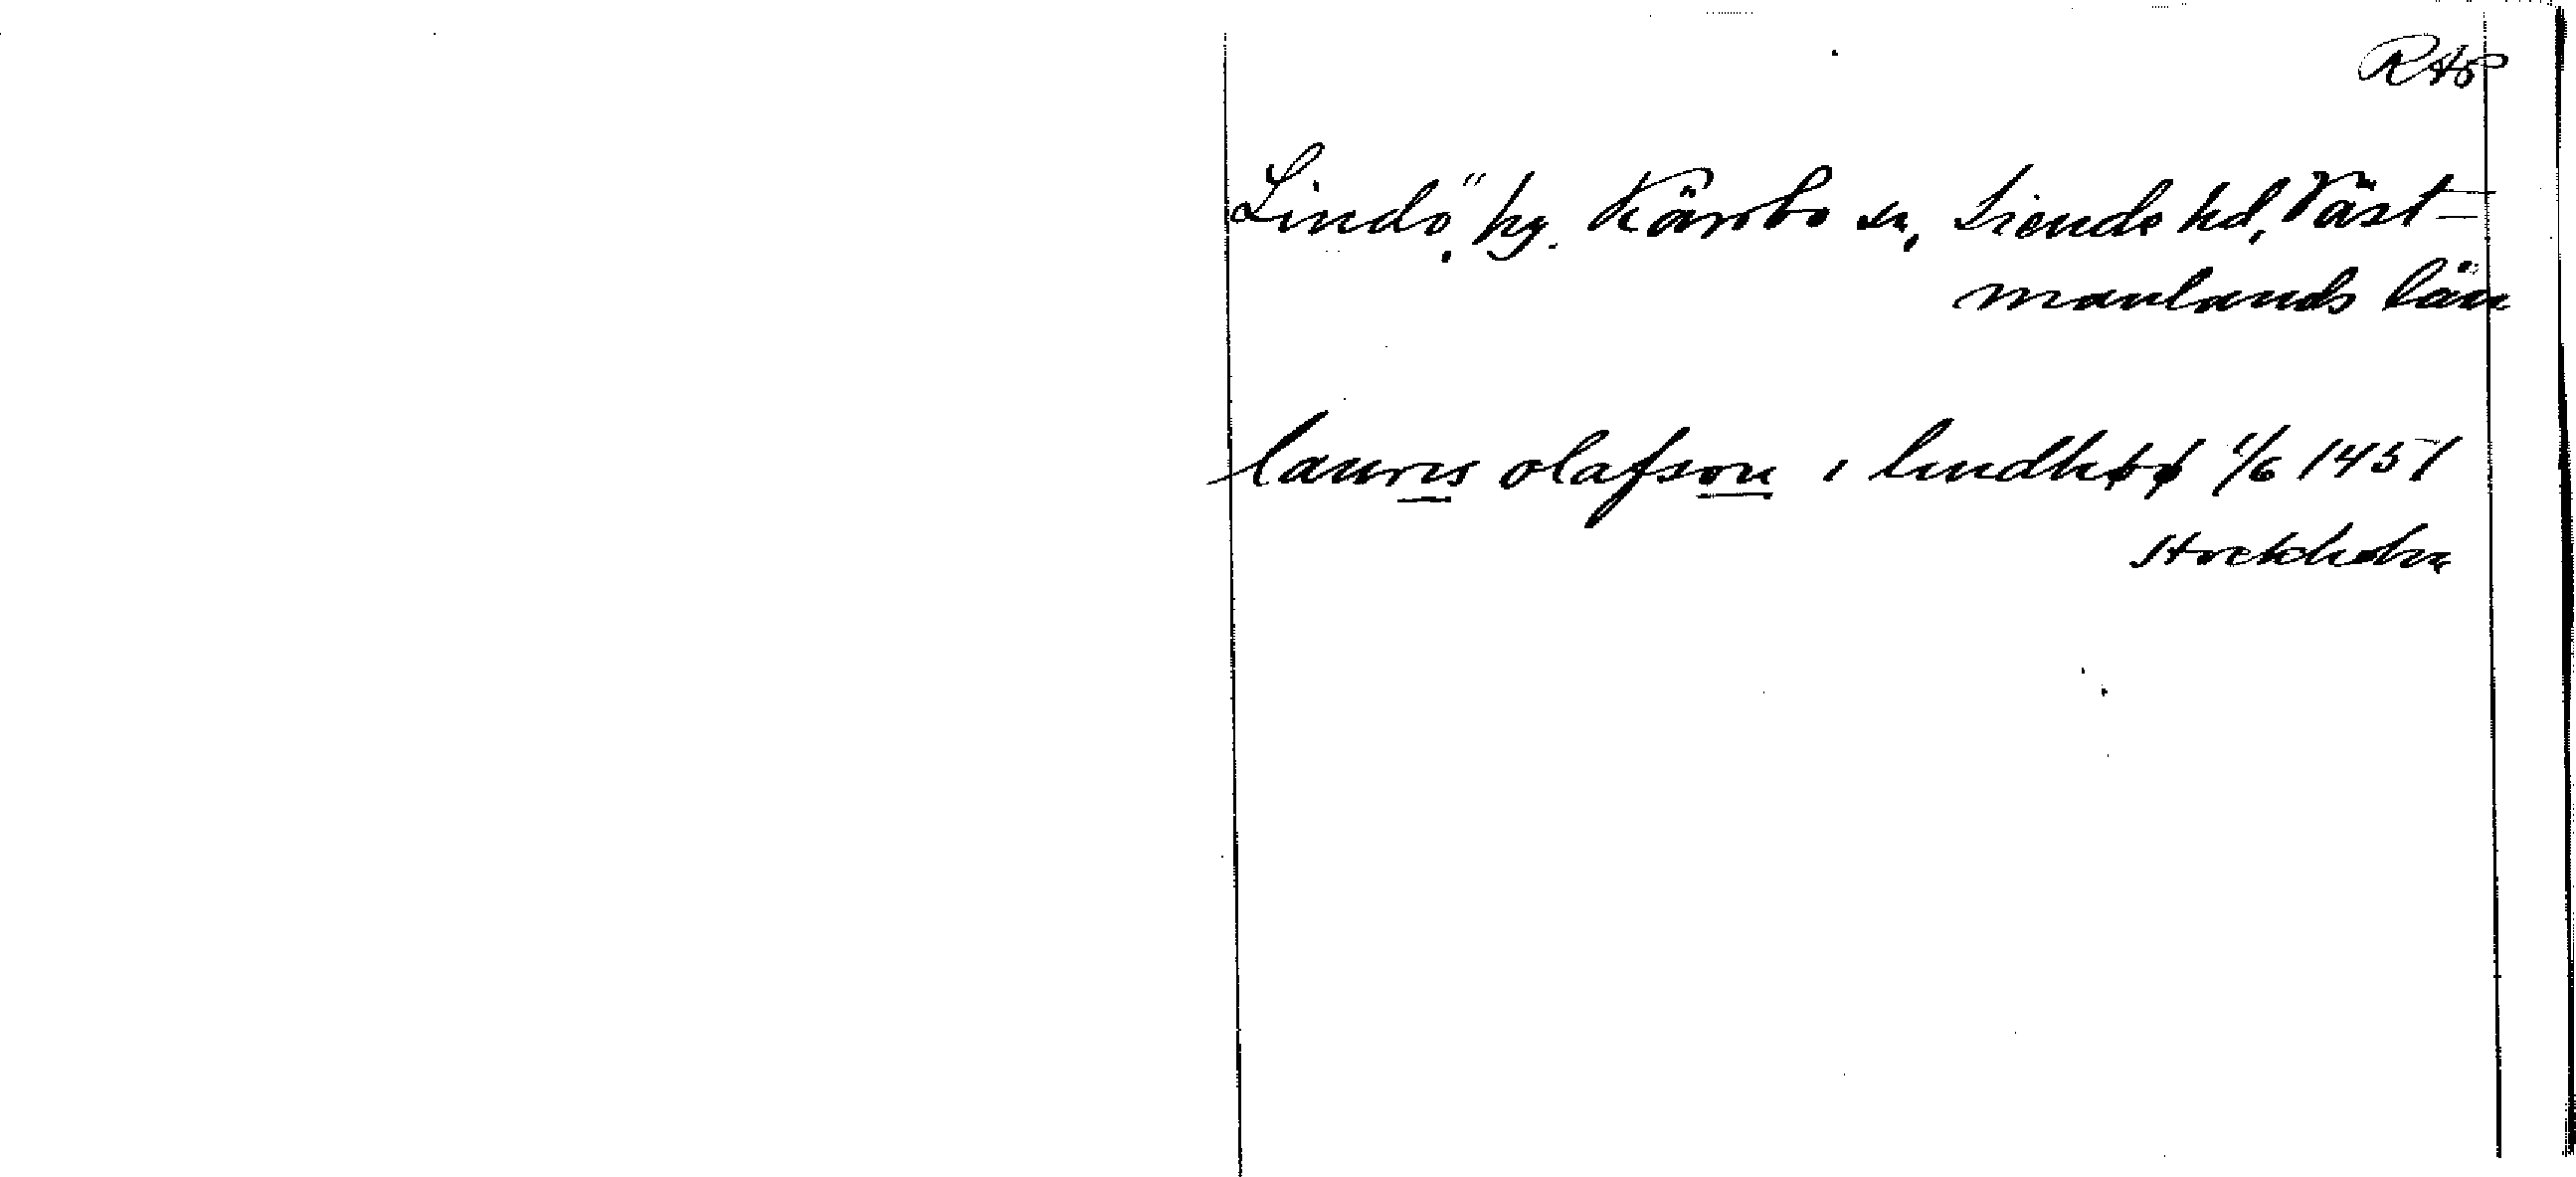 RAp
Lindö, by. Kärrbo sn, Siende hd, Väst-
manlands län
lauris olafson i lindhøø 1/6 1451
Stockholm